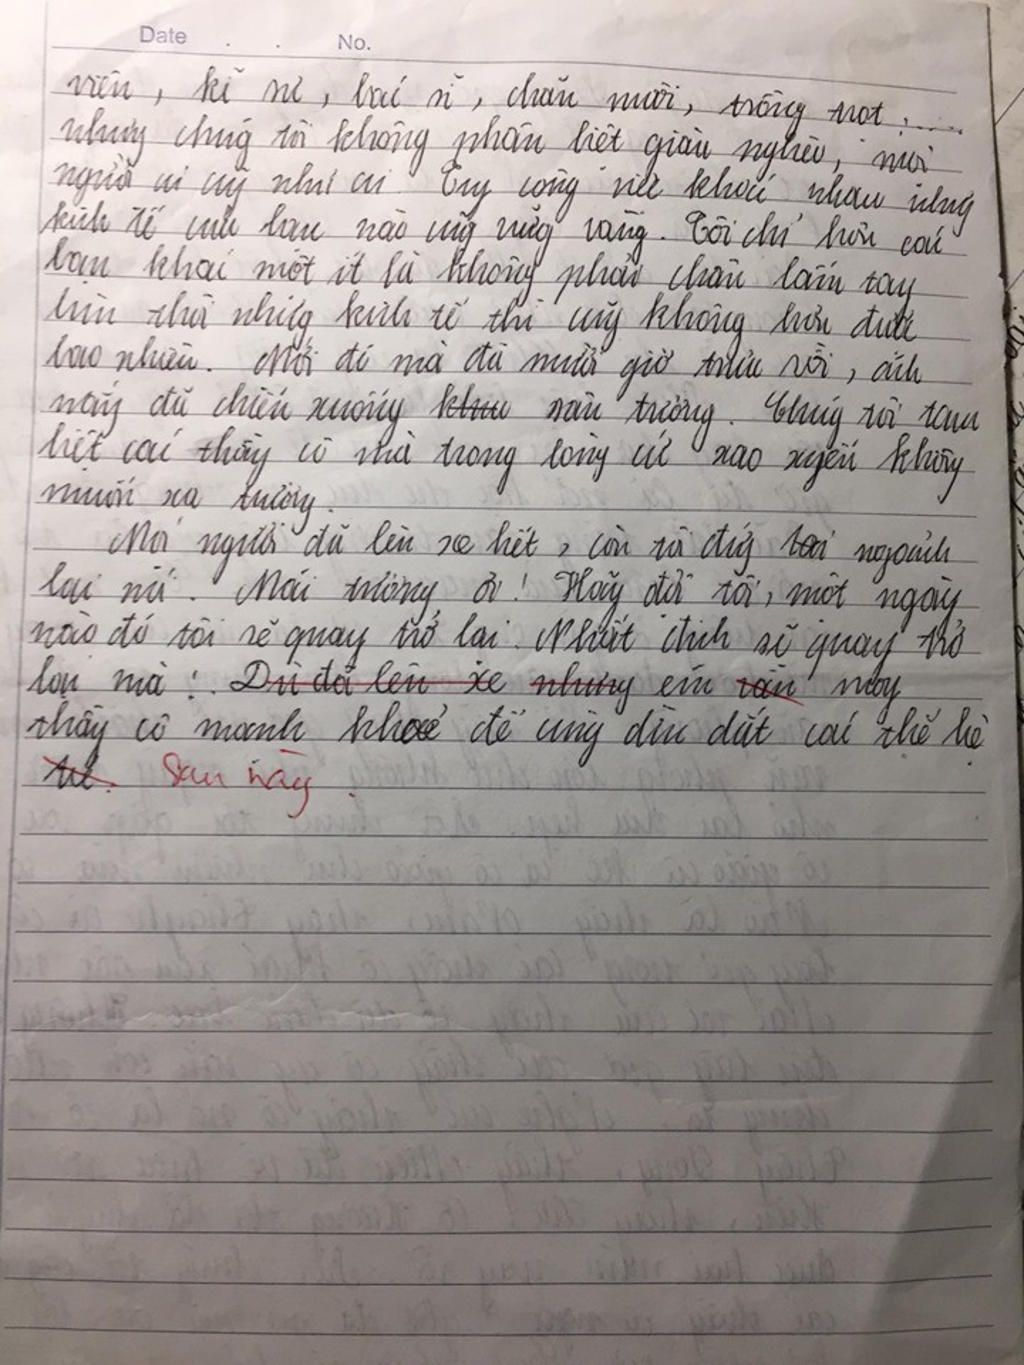 Date . . No.
viên, kĩ sư, bác sĩ, chăn nuôi, trồng trọt :....
nhưng chúng tôi không phân biệt giàu nghèo, mọi
người ai cũng như ai. Tuy công việc khác nhau nhưng
kinh tế của bạn nào cũng vững vàng. Tôi chỉ hơn các
bạn khác một ít là không phải chân lấm tay
bùn thôi nhưng kinh tế thì cũng không hơn được
bao nhiêu. Mới đó mà đã mười giờ trưa rồi, ánh
nắng đã chiếu xuống khu sân trường. Chúng tôi tạm
biệt các thầy cô mà trong lòng cứ xao xuyến không
muốn xa trường.
Mọi người đã lên xe hết, còn tôi đứng lại ngoảnh
lại nữa. Mái trường ơi! Hãy đợi tôi, một ngày
nào đó tôi sẽ quay trở lại. Nhất định sẽ quay trở
lại mà!. Dù đã lên xe nhưng em vẫn mong
thầy cô mạnh khoẻ để cùng dìu dắt các thế hệ
trẻ. Sau này.